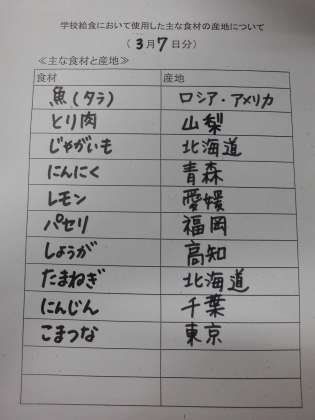 学校給食において使用した主な食材の産地について
（ 3月7日分）
≪主な食材と産地≫
食材 産地
魚(タラ) ロシア・アメリカ
とり肉 山梨
じゃがいも 北海道
にんにく 青森
レモン 愛媛
パセリ 福岡
しょうが 高知
たまねぎ 北海道
にんじん 千葉
こまつな 東京